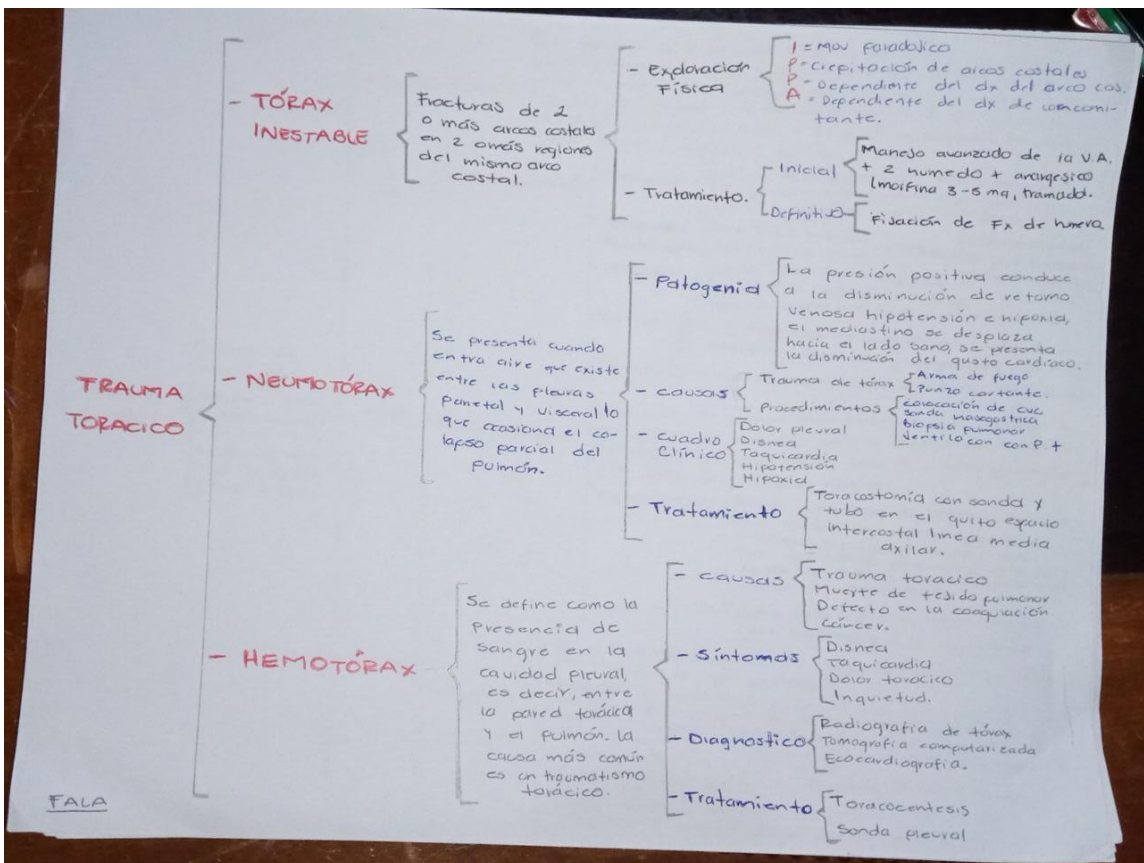 TRAUMA
TORACICO
- TÓRAX
INESTABLE
Fracturas de 2
o más arcos costales
en 2 o más regiones
del mismo arco
costal.
- Exploración
Física
I = Mov paradojico
P - Crepitación de arcos costales
P - Dependiente del dx del arco cos.
A - Dependiente del dx de concomi-
tante.
- Tratamiento.
Inicial
Manejo avanzado de la V.A.
+ 2 numedo + anargesico
(morfina 3-5 mg, tramadol.
Definitivo
Fijación de Fx de
- NEUMOTÓRAX
Se presenta cuando
entra aire que existe
entre las pleuras
parietal y visceral lo
que ocasiona el co-
lapso parcial del
pulmón.
- Patogenia
La presión positiva conduce
a la disminución de retorno
venosa hipotensión e hipoxia,
el mediastino se desplaza
hacia el lado sano, se presenta
la disminución del gusto cardíaco.
- causas
Trauma de tórax
Arma de fuego
Punzo cortante.
Procedimientos
colocación de cvc
sonda nasogastrica
biopsia pulmonar
ventilacon con P. +
- cuadro
Clínico
Dolor pleural
Disnea
Taquicardia
Hipotensión
Hipoxia
- Tratamiento
Toracostomía con sonda y
tubo en el quito espacio
intercostal linea media
axilar.
- HEMOTÓRAX
Se define como la
presencia de
sangre en la
cavidad pleural,
es decir, entre
la pared torácica
y el pulmón. La
causa más común
es un traumatismo
torácico.
- causas
Trauma toracico
Muerte de tejido pulmonar
Defecto en la coagulación
cáncer.
- Síntomas
Disnea
Taquicardia
Dolor toracico
Inquietud.
- Diagnostico
Radiografía de tórax
Tomografía computarizada
Ecocardiografía.
- Tratamiento
Toracocentesis
Sonda pleural
FALA